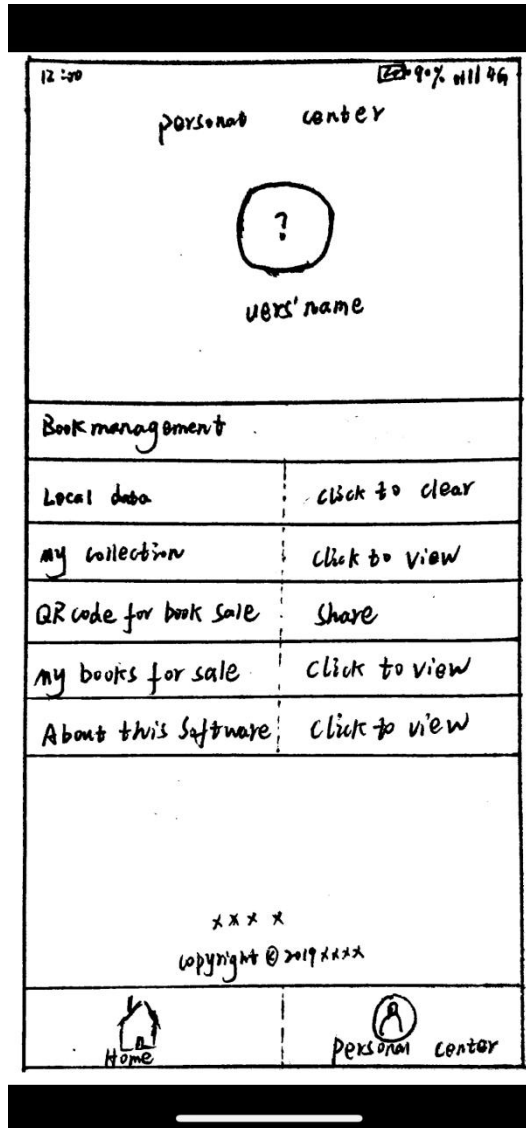 12:00 90% 4G
personal center
?
uers'name
Book management
Local data click to clear
my collection click to view
QR code for book sale share
my books for sale click to view
About this software click to view
xxxx
copyright © 2019 xxxx
Home personal center